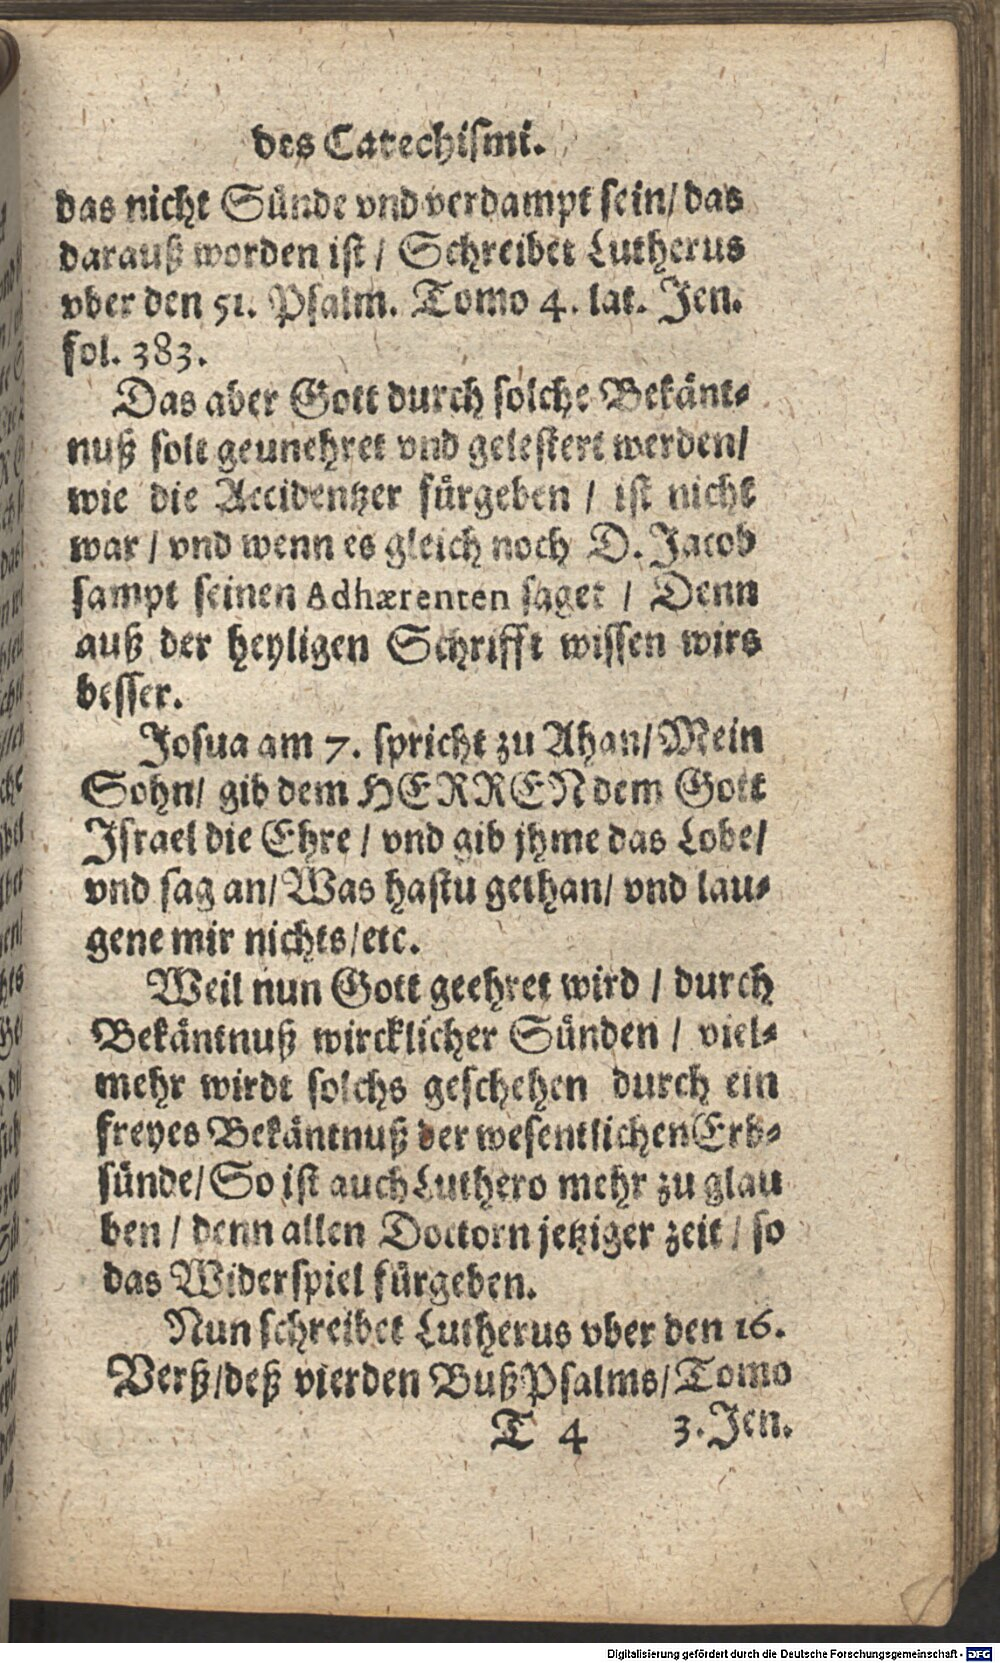 des Catechiſmi.
das nicht Sünde vnd verdampt ſein/ das
darauß worden iſt / Schreibet Lutherus
vber den 51. Pſalm. Tomo 4. lat. Jen.
fol. 383.
Das aber Gott durch ſolche Bekänt⸗
nuß ſolt geunehret vnd geleſtert werden/
wie die Accidentzer fürgeben / iſt nicht
war / vnd wenn es gleich noch D. Jacob
ſampt ſeinen Adhærenten ſaget / Denn
auß der heyligen Schrifft wiſſen wirs
beſſer.
Joſua am 7. ſpricht zu Ahan/ Mein
Sohn/ gib dem HERREN dem Gott
Iſrael die Ehre / vnd gib jhme das Lobe/
vnd ſag an/ Was haſtu gethan/ vnd lau⸗
gene mir nichts/ etc.
Weil nun Gott geehret wird / durch
Bekäntnuß wircklicher Sünden / viel⸗
mehr wirdt ſolchs geſchehen durch ein
freyes Bekäntnuß der weſentlichen Erb⸗
ſünde/ So iſt auch Luthero mehr zu glau
ben / denn allen Doctorn jetziger zeit / ſo
das Widerſpiel fürgeben.
Nun ſchreibet Lutherus vber den 16.
Verß/ deß vierden BußPſalms/ Tomo
T 4 3. Jen.
Digitalisierung gefördert durch die Deutsche Forschungsgemeinschaft - DFG